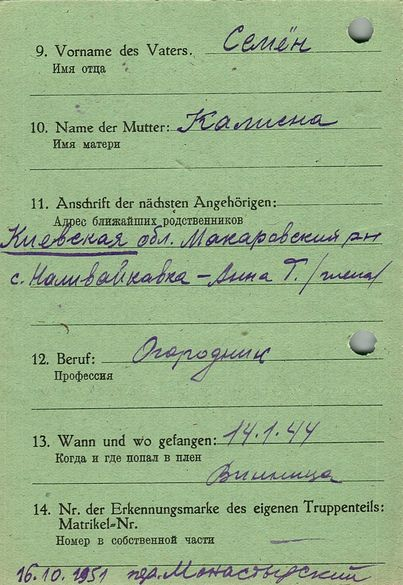 9. Vorname des Vaters. Семён
Имя отца
10. Name der Mutter: Калисна
Имя матери
11. Anschrift der nächsten Angehörigen:
Адрес ближайших родственников
Киевская обл. Макаровский рн
с. Наливайковка – Анна Т. /жена/
12. Beruf: Огородник
Профессия
13. Wann und wo gefangen: 14.1.44
Когда и где попал в плен
Винница
14. Nr. der Erkennungsmarke des eigenen Truppenteils:
Matrikel-Nr.
Номер в собственной части —
16.10.1951 Монастырский